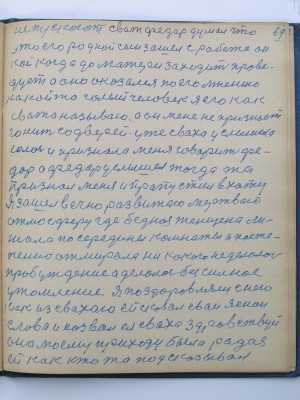 не пускают сват федор думал что
это его родной сын зашел с работы он
кой когда до матери заходит прове-
дует а оно оказался по его мнению
какой то голый человек я его как
сва та называю, а он мене не признает
гонит с дверей. уже сваха услышела
голос и признала меня говорит фе-
дор а федор услышел тогда та
признал меня и пропустили в хату
Я зашел вечно развитаю мертваю
отмосферу где бедноя женщена ли-
жала по середины комноты и посте-
пенно отмирала ни какого недомого
пробуждение а делолось бес сильное
утомление. Я поздоровлям снею
как из свахаю ей сказал сваи Яенои
слова и назвал ея сваха Здравствуй
она моему приходу была радоя
ей как кто то подсказывал